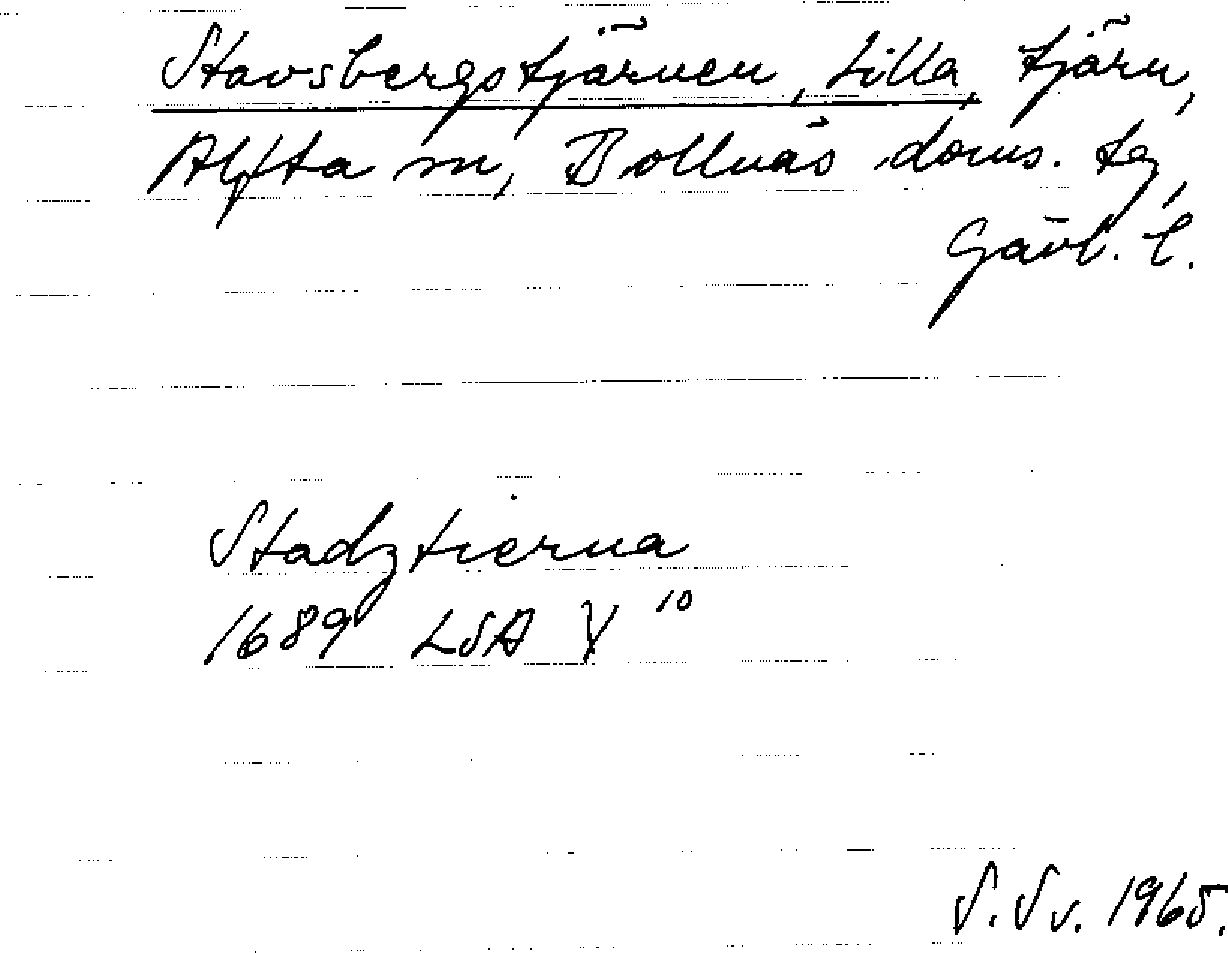 Stavsbergstjärnen, Lilla, tjärn,
Alfta sn, Bollnäs doms. tg,
Gävl. l.
Stadztierna
1689 LSA V 10
S. Sv. 1965.